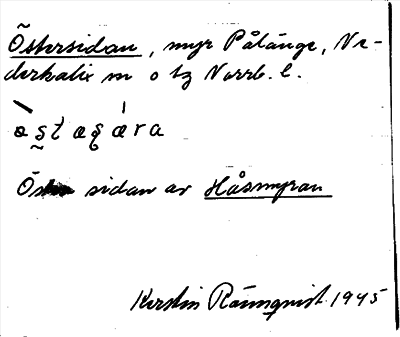 Östersidan, myr Pålänge, Ne-
derkalix sn o tg Norrb. l.
æs̠t æg æra
Östra sidan av Håsmyran
Kerstin Rönnqvist 1945